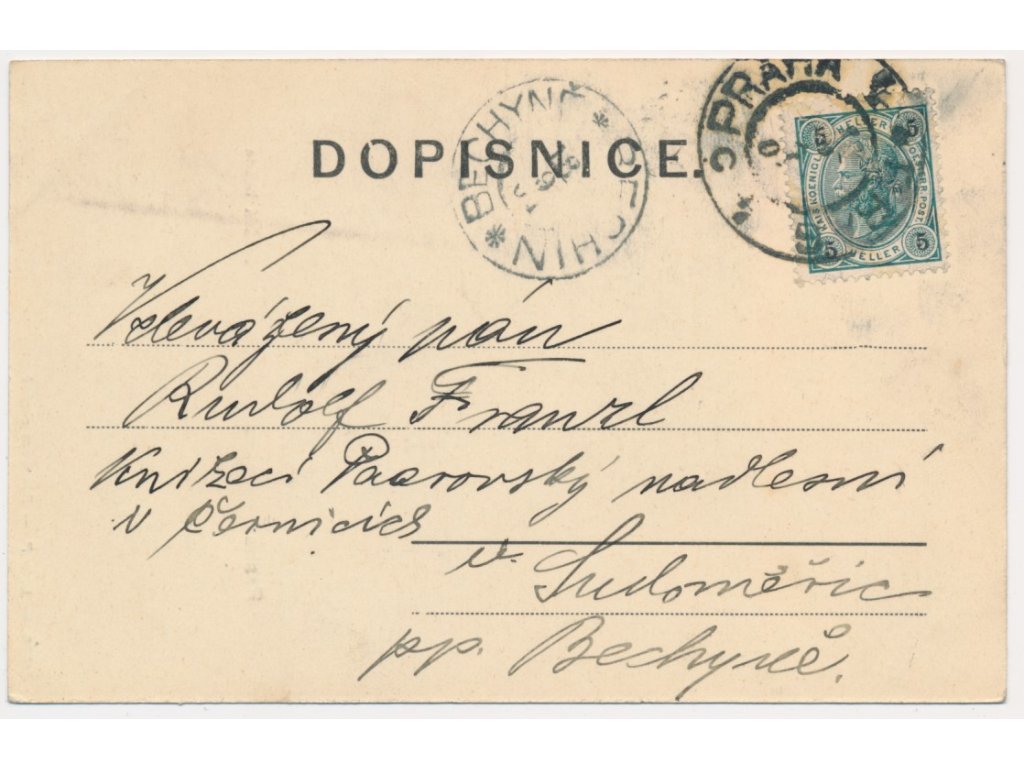 DOPISNICE.
BECHYNĚ * BECHIN *
PRAHA
5 HELLER 5
KAIS KOENIGL OESTERR POST.
5 HELLER 5
Velevážený pán
Rudolf Franzl
Knížecí Paarovský nadlesní
v Černicích
u. Sudoměřic
pp. Bechyně.